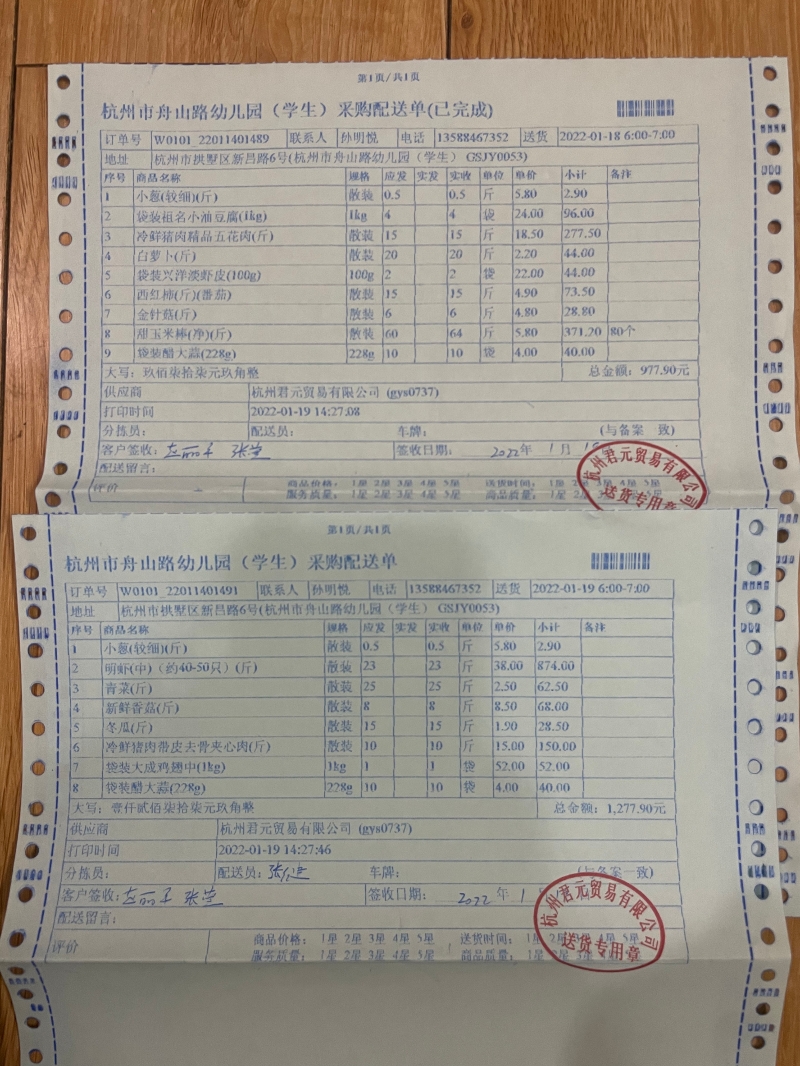 第1页/共1页
杭州市舟山路幼儿园（学生）采购配送单(已完成)
订单号 W0101_22011401489 联系人 孙明悦 电话 13588467352 送货 2022-01-18 6:00-7:00
地址 杭州市拱墅区新昌路6号(杭州市舟山路幼儿园（学生） GSJY0053)
序号 商品名称 规格 应发 实发 实收 单位 单价 小计 备注
1 小葱(较细)(斤) 散装 0.5 0.5 斤 5.80 2.90
2 袋装祖名小油豆腐(1kg) 1kg 4 4 袋 24.00 96.00
3 冷鲜猪肉精品五花肉(斤) 散装 15 15 斤 18.50 277.50
4 白萝卜(斤) 散装 20 20 斤 2.20 44.00
5 袋装兴洋淡虾皮(100g) 100g 2 2 袋 22.00 44.00
6 西红柿(斤)(番茄) 散装 15 15 斤 4.90 73.50
7 金针菇(斤) 散装 6 6 斤 4.80 28.80
8 甜玉米棒(净)(斤) 散装 60 64 斤 5.80 371.20 80个
9 袋装醋大蒜(228g) 228g 10 10 袋 4.00 40.00
大写：玖佰柒拾柒元玖角整 总金额：977.90元
供应商 杭州君元贸易有限公司 (gys0737)
打印时间 2022-01-19 14:27:08
分拣员： 配送员： 车牌： (与备案一致)
客户签收： 签收日期： 2022年 1月
配送留言：
评价 商品价格： 1星 2星 3星 4星 5星 送货时间： 1星 2星 3星 4星 5星
服务质量： 1星 2星 3星 4星 5星 商品质量： 1星
杭州君元贸易有限公司
送货专用章
第1页/共1页
杭州市舟山路幼儿园（学生）采购配送单
订单号 W0101_22011401491 联系人 孙明悦 电话 13588467352 送货 2022-01-19 6:00-7:00
地址 杭州市拱墅区新昌路6号(杭州市舟山路幼儿园（学生） GSJY0053)
序号 商品名称 规格 应发 实发 实收 单位 单价 小计 备注
1 小葱(较细)(斤) 散装 0.5 0.5 斤 5.80 2.90
2 明虾(中)（约40-50只）(斤) 散装 23 23 斤 38.00 874.00
3 青菜(斤) 散装 25 25 斤 2.50 62.50
4 新鲜香菇(斤) 散装 8 8 斤 8.50 68.00
5 冬瓜(斤) 散装 15 15 斤 1.90 28.50
6 冷鲜猪肉带皮去骨夹心肉(斤) 散装 10 10 斤 15.00 150.00
7 袋装大成鸡翅中(1kg) 1kg 1 1 袋 52.00 52.00
8 袋装醋大蒜(228g) 228g 10 10 袋 4.00 40.00
大写：壹仟贰佰柒拾柒元玖角整 总金额：1,277.90元
供应商 杭州君元贸易有限公司 (gys0737)
打印时间 2022-01-19 14:27:46
分拣员： 配送员： 车牌： (与备案一致)
客户签收： 签收日期： 2022年 1
配送留言：
评价 商品价格： 1星 2星 3星 4星 5星 送货时间： 1星 2星 3星 4星 5星
服务质量： 1星 2星 3星 4星 5星 商品质量： 1星
杭州君元贸易有限公司
送货专用章